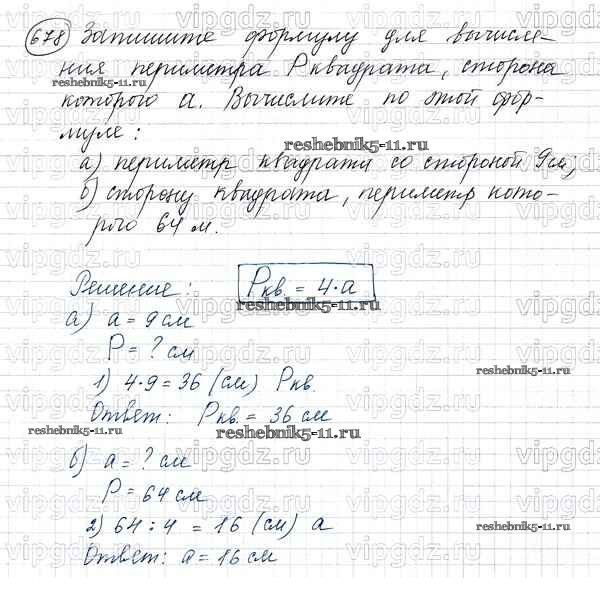 678 Запишите формулу для вычисле-
ния периметра P квадрата, сторона
которого a. Вычислите по этой фор-
муле:
а) периметр квадрата со стороной 9 см,
б) сторону квадрата, периметр кото-
рого 64 м.
Решение: Pкв. = 4·a
а) a = 9 см
P = ? см
1) 4·9 = 36 (см) Pкв.
Ответ: Pкв. = 36 см
б) a = ? см
P = 64 см
2) 64 : 4 = 16 (см) a
Ответ: a = 16 см
reshebnik5-11.ru
vipgdz.ru